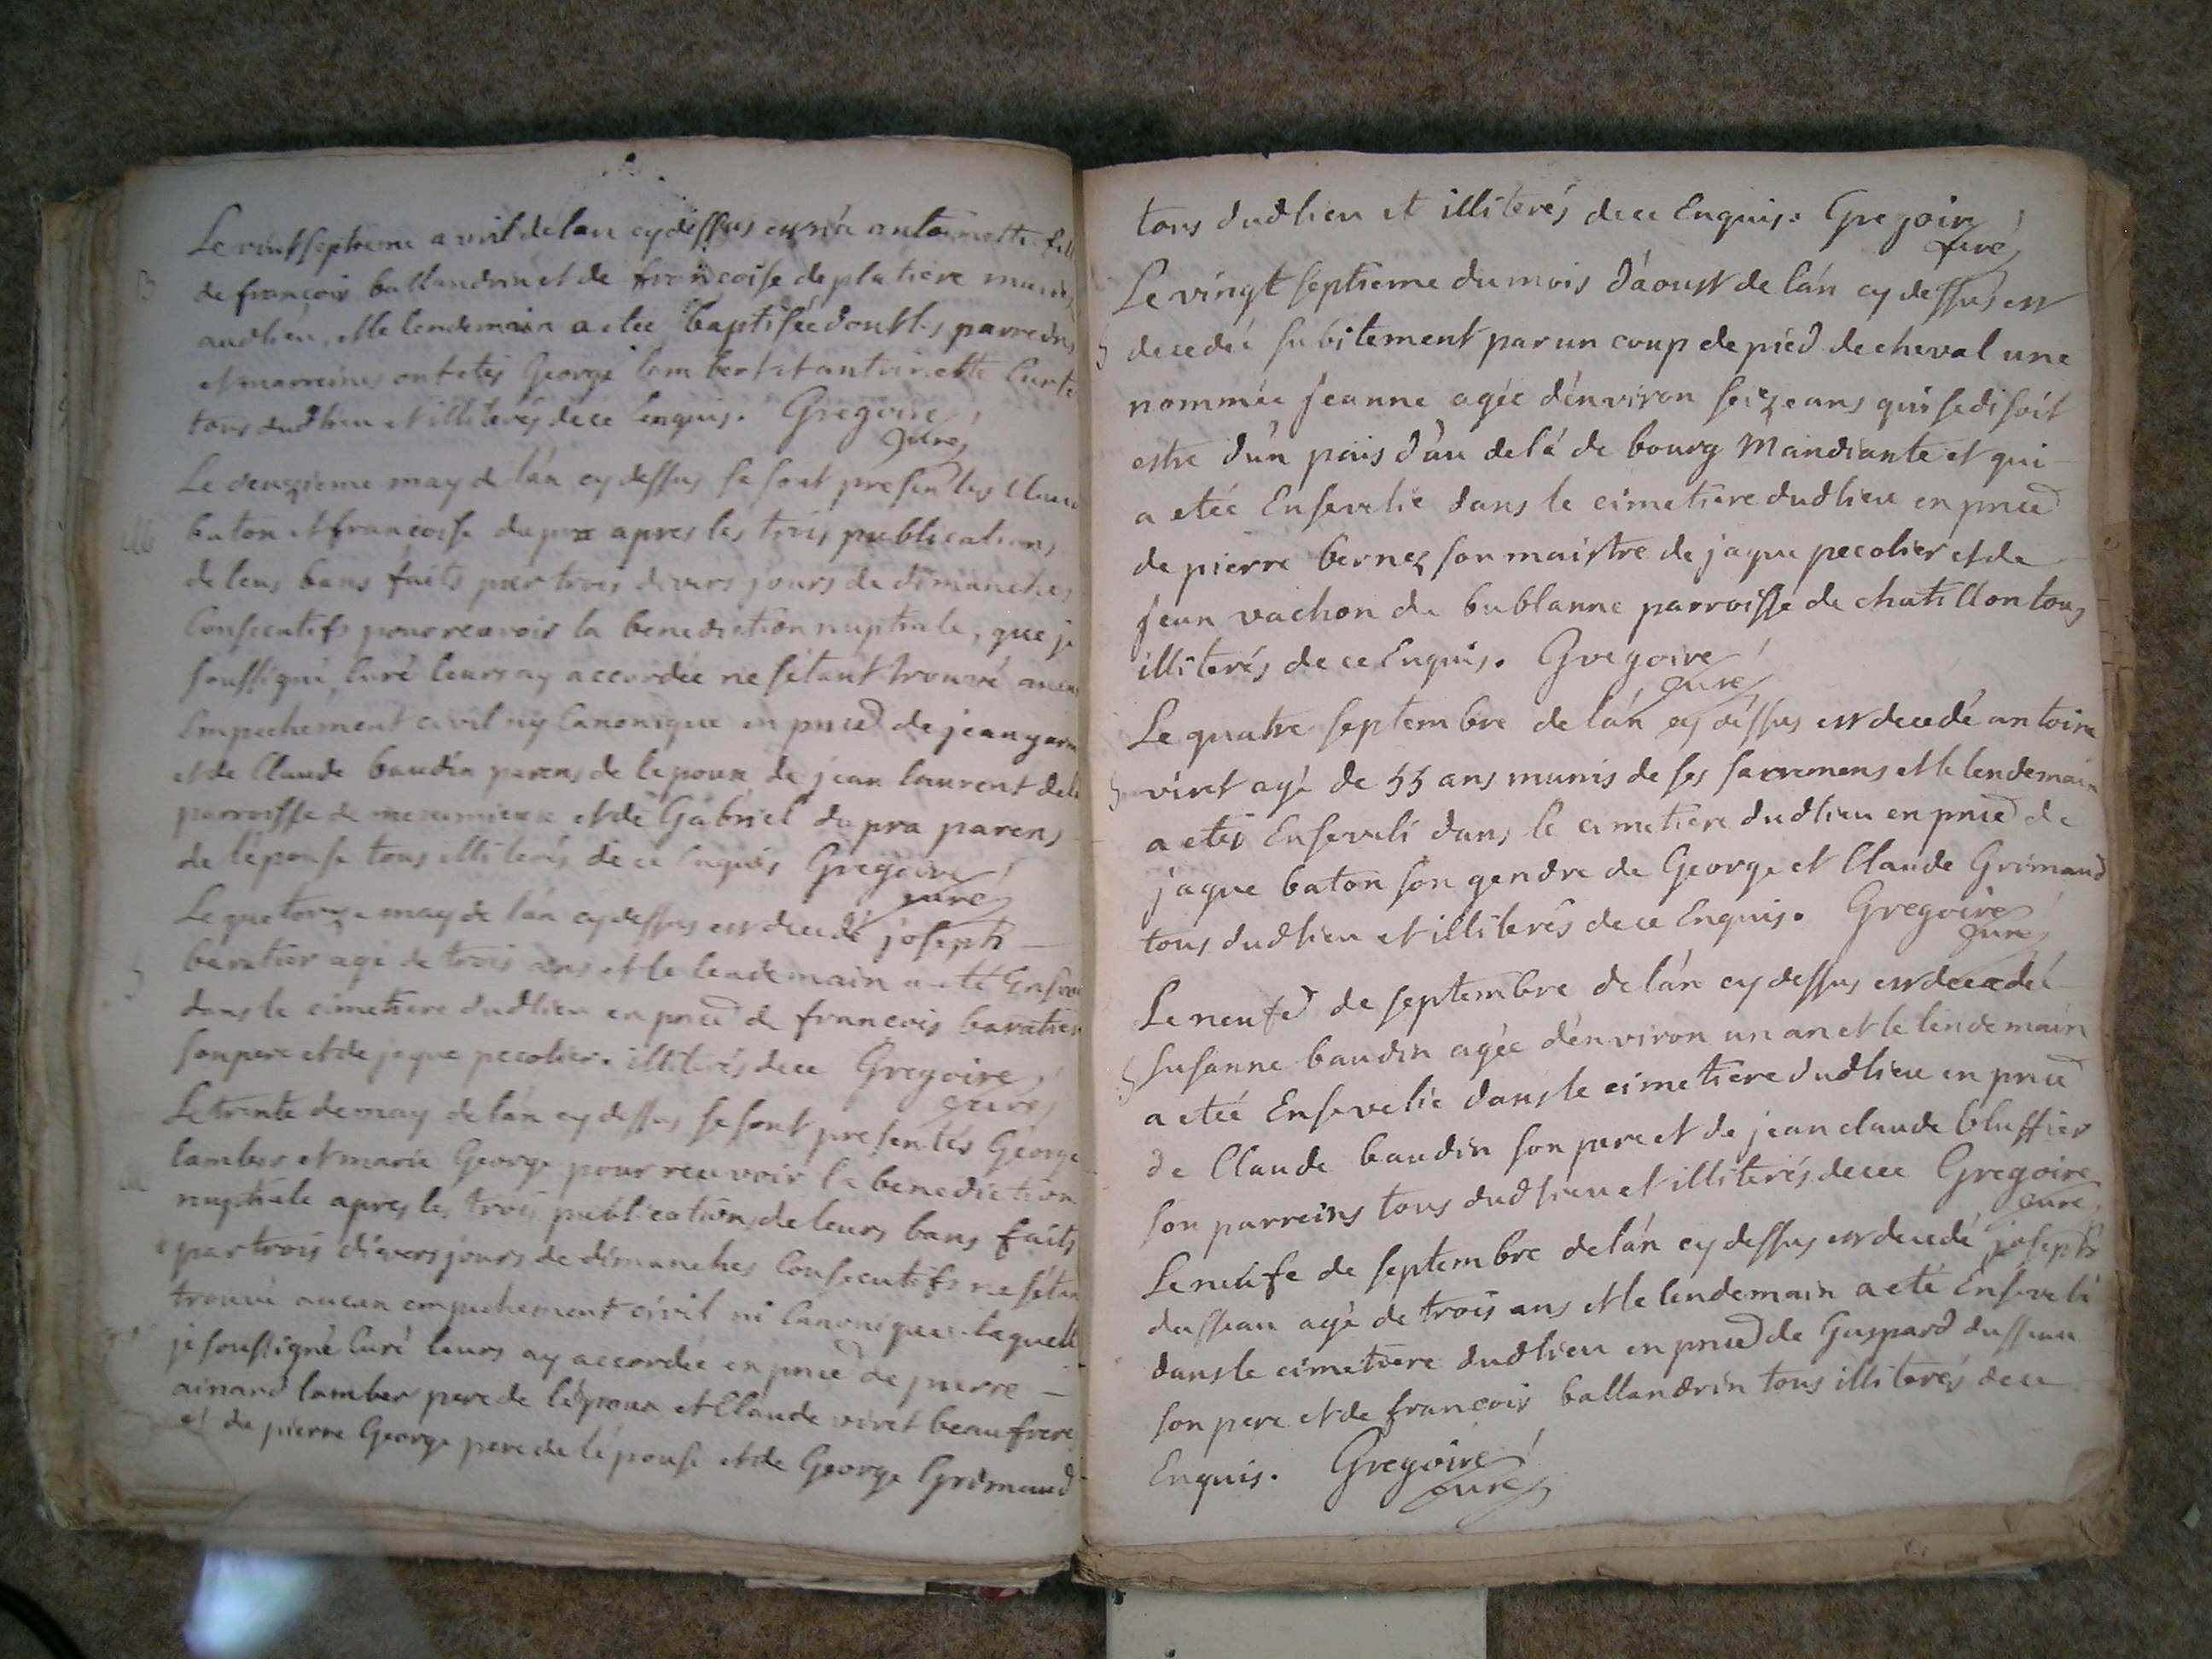 Le vintseptieme avril de lan cy dessus est née antoinette fill
B
de françois ballandrin et de francoise de platiere mariés
audlieu, et le lendemain a etée baptisée dont les parreins
et marreines ont etés George lambert et antoinette Curte
tous dudlieu et illiterés de ce enquis. Gregoire
curé
Le deuzieme may de lán cy dessus se sont presentes Claude
M
baton et francoise dupra apres les trois publications
de leus bans faits par trois divers jours de dimanches
Consecutifs pour recevoir la benediction nuptiale, que je
soussigné, Curé leurs ay accordée ne sétant trouvé aucun
Empechement civil ny Canonique en pnced de jean
et de Claude baudin parens de lepoux de jean laurent dela
parroisse de meximieux et de Gabriel dupra parens
de lépouse tous illiterés de ce Enquis Gregoire
curé
Le quatorze may de lán cy dessus est decedé joseph
S
baratier agé de trois ans et le lendemain a eté Enseveli
dans le cimetiere dudlieu en pnced de francois baratier
son pere et de jaque pecolier. illiterés de ce Gregoire
curé
Le trente de may de lán cy dessus se sont presentés George
lamber et marie George pour recevoir la benediction
M
nuptiale apres les trois publications de leurs bans faits
par trois divers jours de dimanches Consecutifs ne sétan
trouvé aucun empechement civil ni Canonique laquelle
je soussigné Curé leurs ay accordée en pnced de pierre
ainard lamber pere de lépoux et Claude viret beaufrere
et de pierre George pere de lépouse et de George Grimaud
tous dudlieu et illiterés de ce Enquis. Gregoire
curé
Le vingt septieme du mois dáoust de lán cy dessus est
S
decedée subitement par un coup de pied de cheval une
nommée jeanne agée dénviron seize ans qui se disoit
estre dún païs dáu delá de bourg Mandiante et qui
a etée Ensevelie dans le cimetiere dudlieu en pnced
de pierre bernez son maistre de jaque pecolier et de
jean vachon de bublanne parroisse de chatillon tous
illiterés de ce Enquis. Gregoire
curé
Le quatre septembre de lán cy dessus est decedé antoine
S
viret agé de 55 ans munis de ses sacremens et le lendemain
a etés Enseveli dans le cimetiere dudlieu en pnced de
jaque baton son gendre de George et Claude Grimaud
tous dudlieu et illiterés de ce Enquis. Gregoire
curé
Le neufe de septembre de lán cy dessus est decedée
S
Susanne baudin agée dénviron un an et le lendemain
a etée Ensevelie dans le cimetiere dudlieu en pnced
de Claude baudin son pere et de jean claude bluffier
son parreins tous dudlieu et illiterés de ce Gregoire
curé
Le neufe de septembre de lán cy dessus est decedé joseph
dusseau agé de trois ans et le lendemain a eté Enseveli
dans le cimetiere dudlieu en pnced de Gaspard dusseau
son pere et de francois ballandrin tous illiterés de ce
Enquis. Gregoire
curé